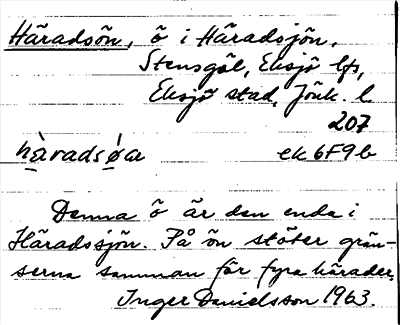 Häradsön, ö i Häradsjön,
Stensgöl, Eksjö lfs,
Eksjö stad, Jönk. l.
207
hàradsøa ek 6F9b
Denna ö är den enda i
Häradssjön. På ön stöter grän-
serna samman för fyra härader.
Inger Danielsson 1963.